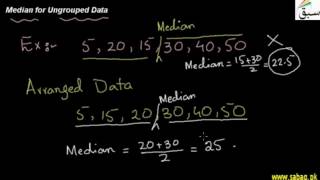 Median for Ungrouped Data
سبق
Median
Ex:- 5, 20, 15 / 30, 40, 50 X
Median = 15+30/2 = 22.5
Arranged Data
Median
5, 15, 20 / 30, 40, 50
Median = 20+30/2 = 25
www.sabaq.pk